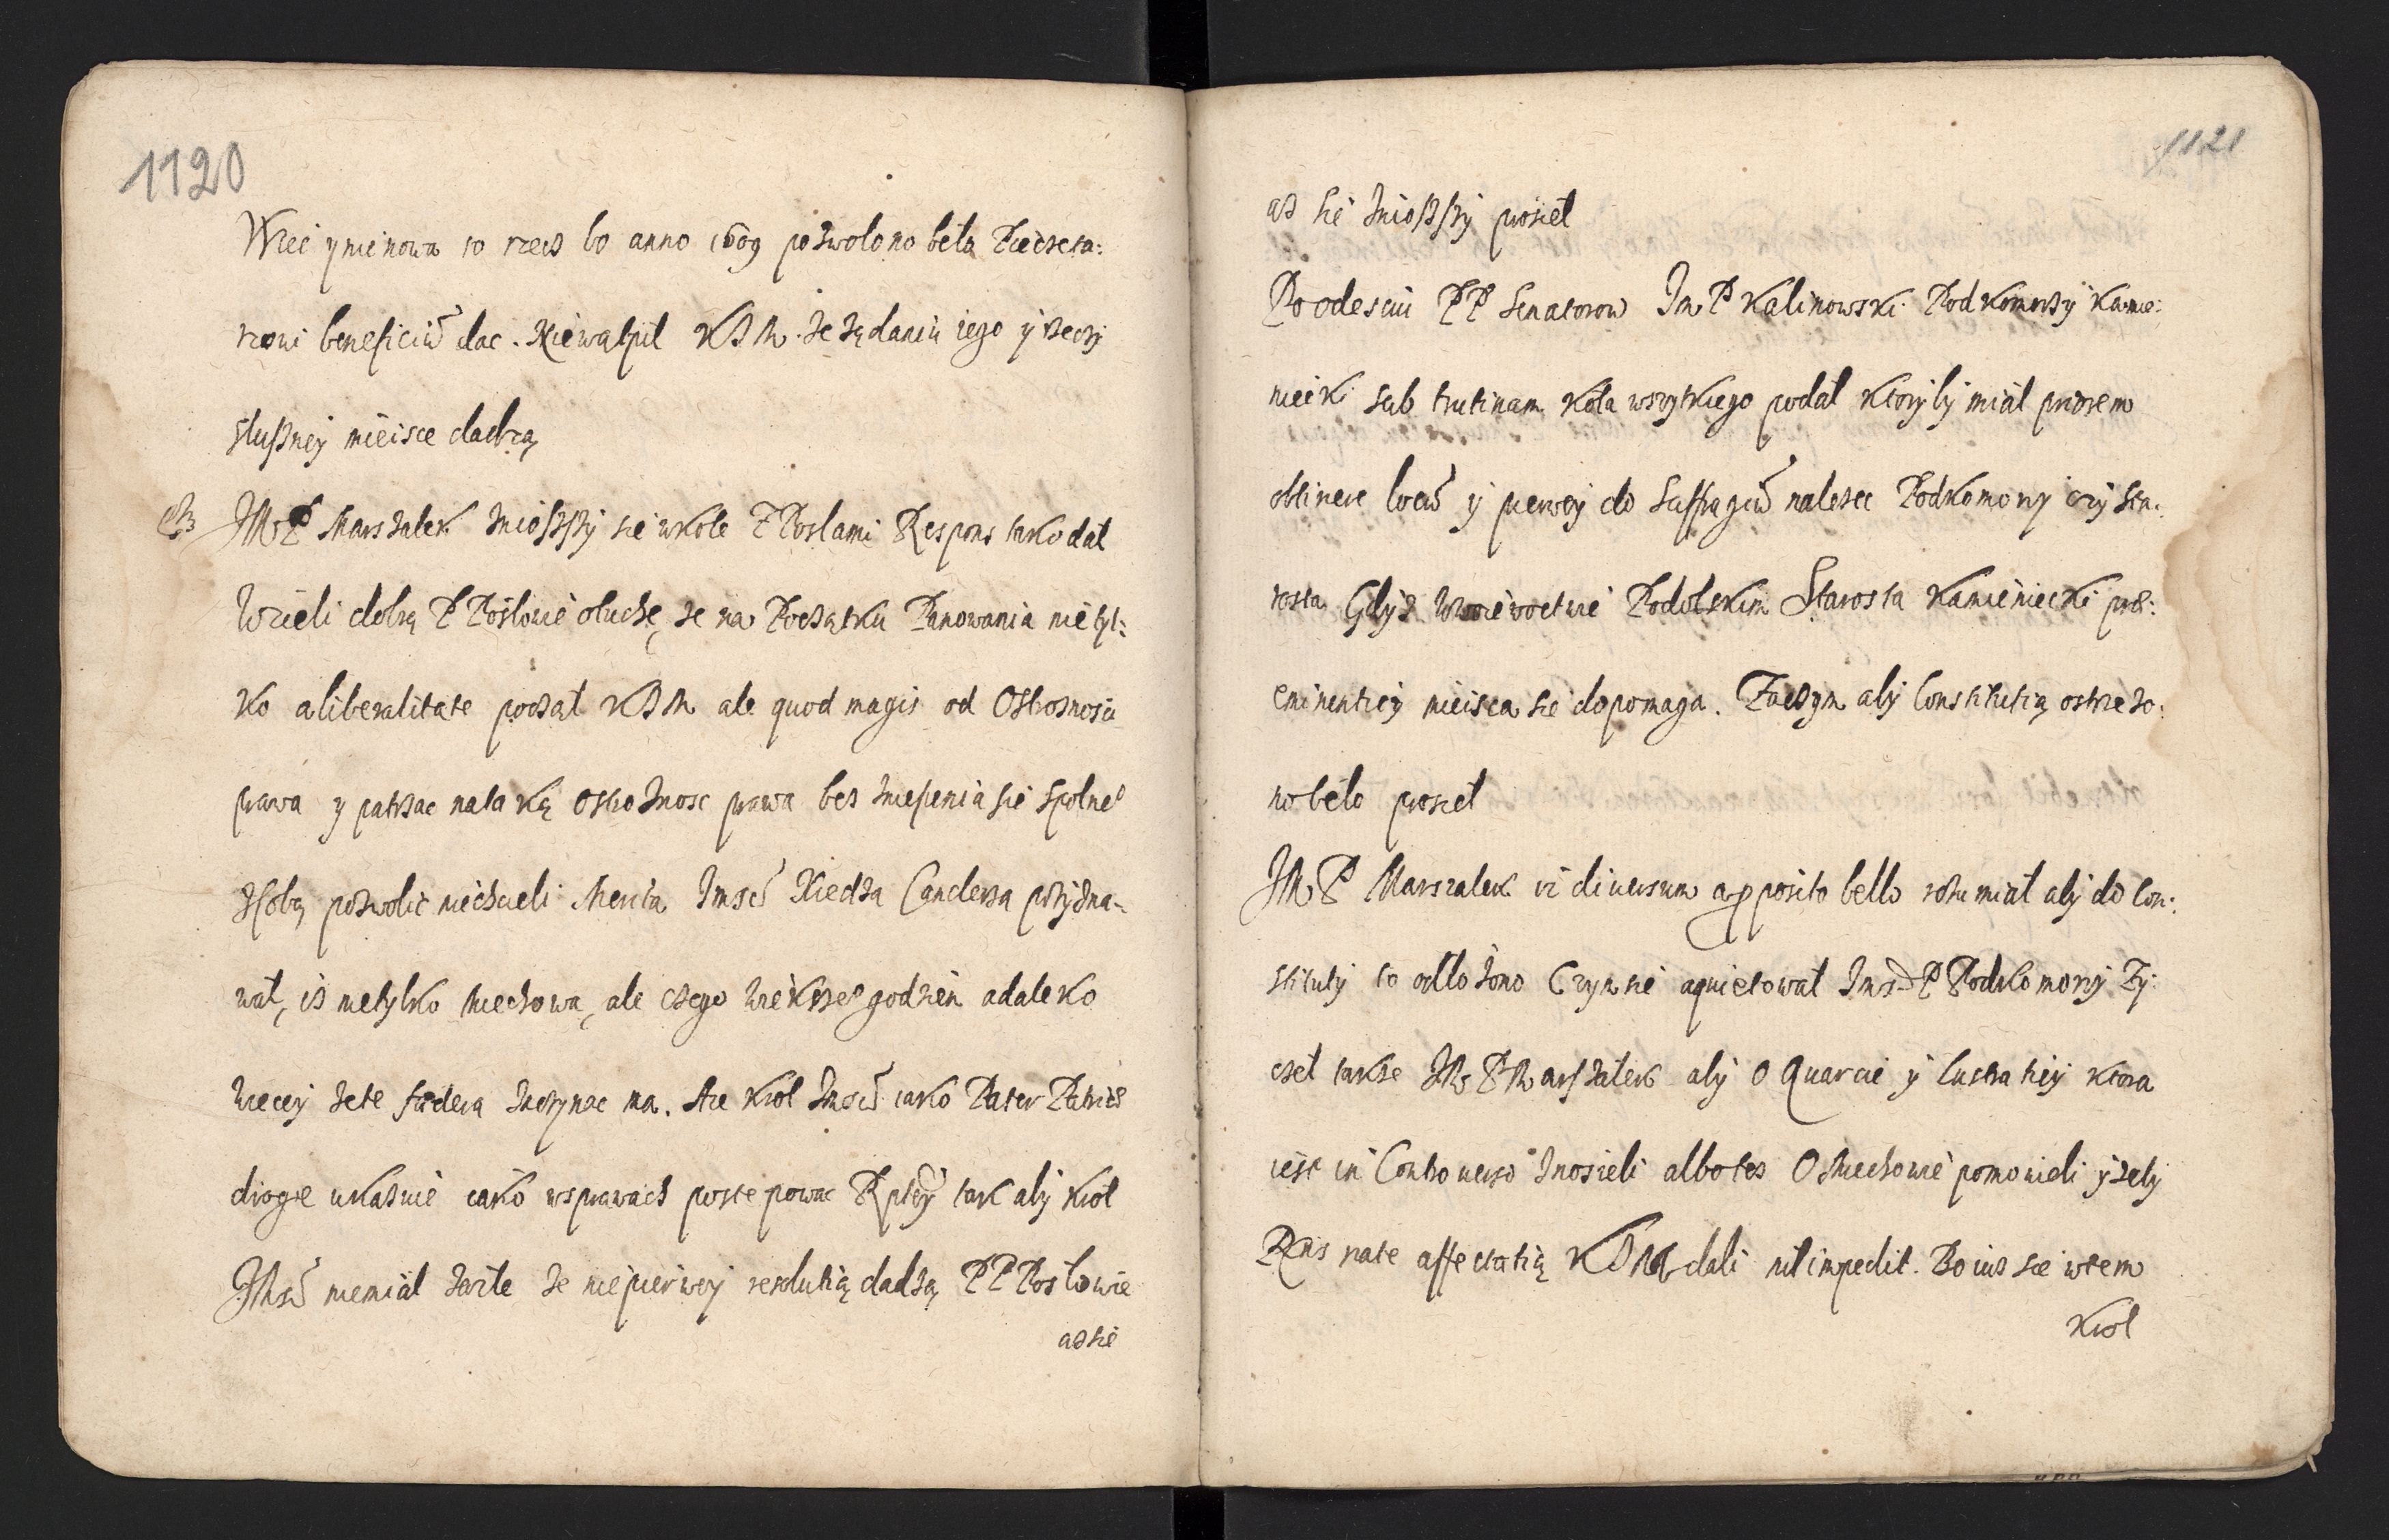 1120
Więc y nie nowa to rzecz bo anno 1609 pozwolono beła Pieczeta:
rzowi beneficiũ dac. Nie wątpił KJM. że żądaniu iego y rzeczy
słuszney mieisce dadzą
JMP Marszałek zniosszy sie w kole z Posłami Respons taki dał
Wzieli dobrą P Posłowie otuchę, że na Początku Panowania nie tyl:
ko a liberalitate począł KJM ale quod magis od Ostroznosci
prawa y patrzac na taką ostroznosc prawa bez zniesienia sie spolne
z sobą pozwolic niechcieli. Merita Jmsci Xiedza Canclerza przyzna-
wał, iz nietylko Miechowa, ale czego wiekszego godzien a daleko
wiecey że te foedera zaczynac ma. Ale Krol Jmsc iako Pater Patriæ
drogie ukaznie iako w sprawach postepowac Rptey tak aby Krol
JMsc niemiał za źle że niepierwey resolutią dadzą PP Posłowie
aż sie
aż sie zniosszy prosieł
Po odesciu PP Senatorow Jm P Kalinowski Podkomorzy Kamie:
niecki sub trutinam koła wszytkiego podał ktoryby miał priorem
obtinere locũ y pierwey do suffragiũ nalezec Podkomorzy czy Sta:
rosta Gdyż w woiewoctwie Podolskim Starosta Kamieniecki præ:
eminentiey mieisca sie dopomaga. Zaczym aby Constitutią ostrzezo:
no beło prosieł
JM P Marszałek in diversum apposito bello rozumiał aby do Con:
stituty to odłożono Czym sie aquietował Jms P Podkomorzy Zy:
czeł takze JM P Marszałek aby o Quarcie y lustratiey ktora
iest in Controverso znosieli albo tez o Miechowie pomowieli y żeby
Rns na te affectatią KJM dali nil impedit. Bo iuz sie w tem
Krol
1121